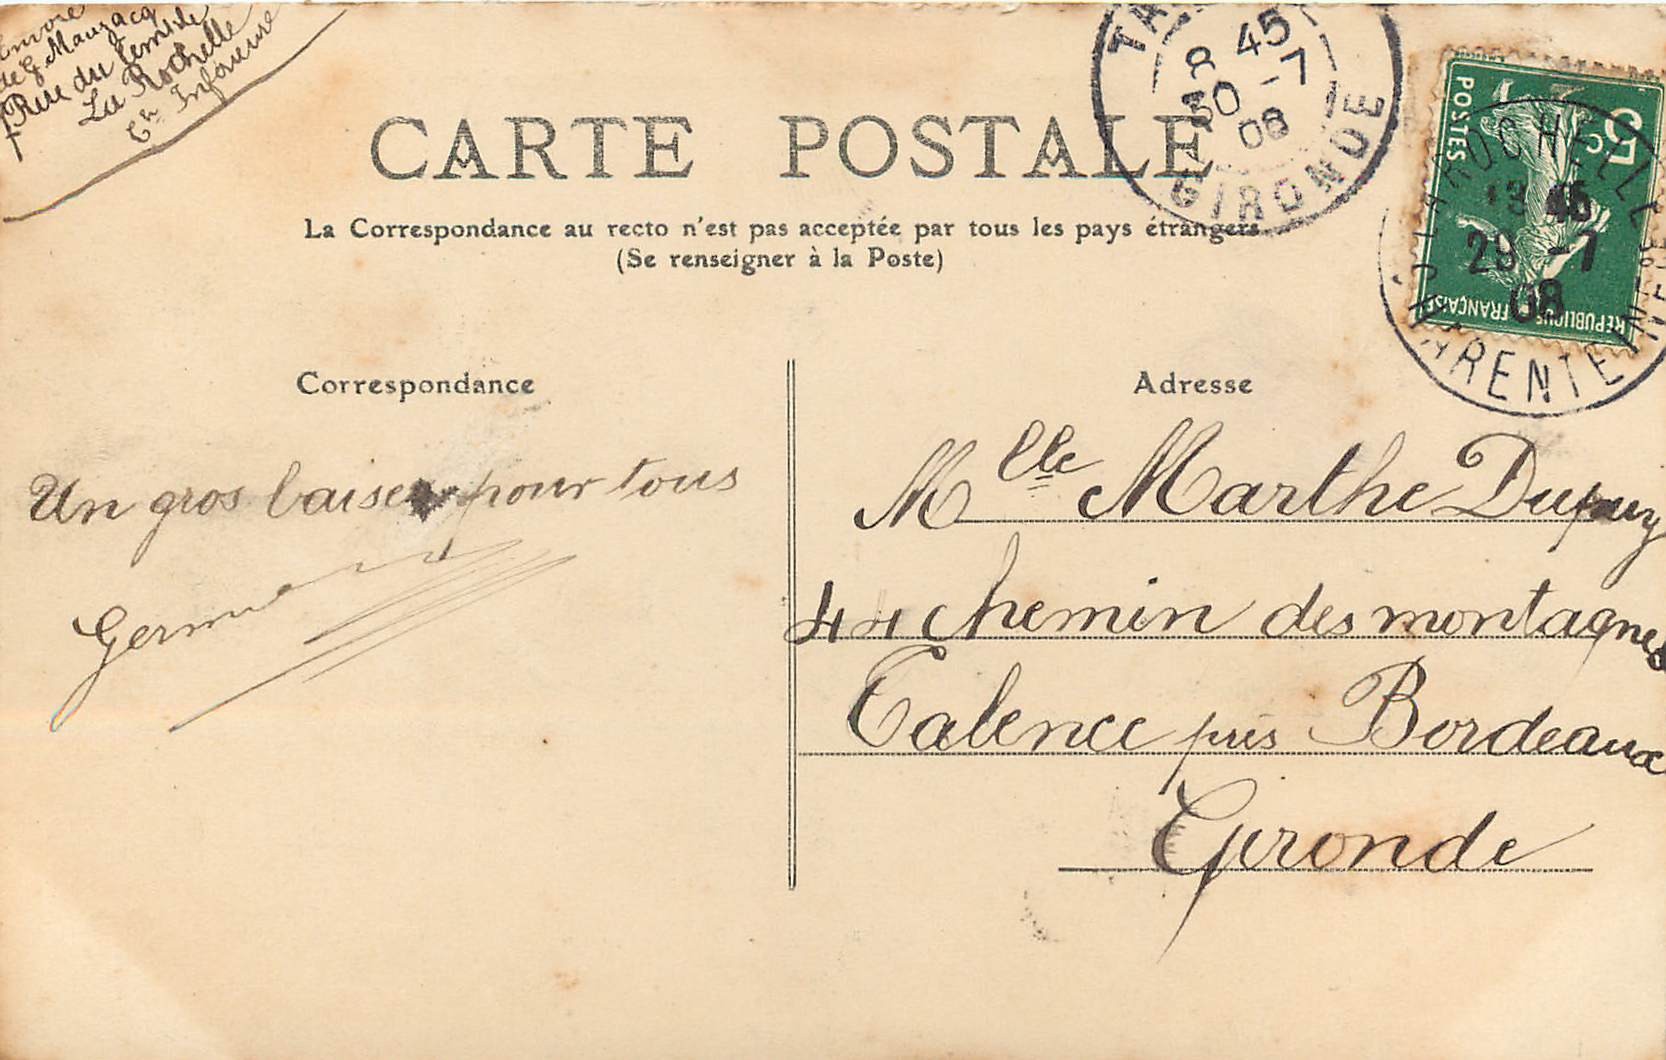 Envoi
de G. Mauzacq
7 Rue du Temple
La Rochelle
Ch Inférieure
CARTE POSTALE
La Correspondance au recto n'est pas acceptée par tous les pays étrangers
(Se renseigner à la Poste)
TALENCE
8 45
30 -7
08
GIRONDE
5c
POSTES
REPUBLIQUE FRANÇAISE
LA ROCHELLE
13 45
29 -7
08
CHARENTE INFRE
Correspondance
Un gros baiser pour tous
Germaine
Adresse
Mlle Marthe Dupuy
44 chemin des montagnes
Talence près Bordeaux
Gironde